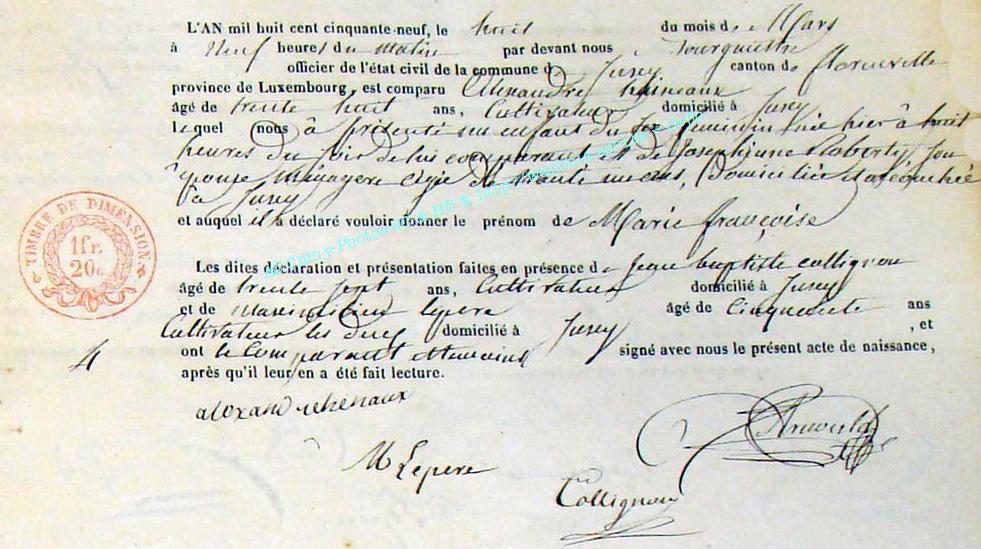 L'AN mil huit cent cinquante-neuf, le huit du mois de Mars
à Neuf heures du matin par devant nous
officier de l'état civil de la commune de Jusey canton de florenville
province de Luxembourg, est comparu Alexandre
âgé de trente huit ans, Cultivateur domicilié à Jusey
lequel nous à présenté un enfant du sexe feminin née hier à huit
heures du soir de lui comparant et de Josephinne Roberty, son
épouse menagere agée de trente un ans, domiciliée et accouchée
à Jusey
et auquel il a déclaré vouloir donner le prénom de Marie françoise
Les dites déclaration et présentation faites en présence de Jean baptiste collignon
âgé de trente sept ans, Cultivateur domicilié à Jusey
et de Maximilien Lepere âgé de Cinquante ans
Cultivateur les deux domicilié à Jusey , et
ont le Comparant et temoins signé avec nous le présent acte de naissance,
après qu'il leur en a été fait lecture.
TIMBRE DE DIMENSION
1fr.
20c.
4
M Lepere
Collignon